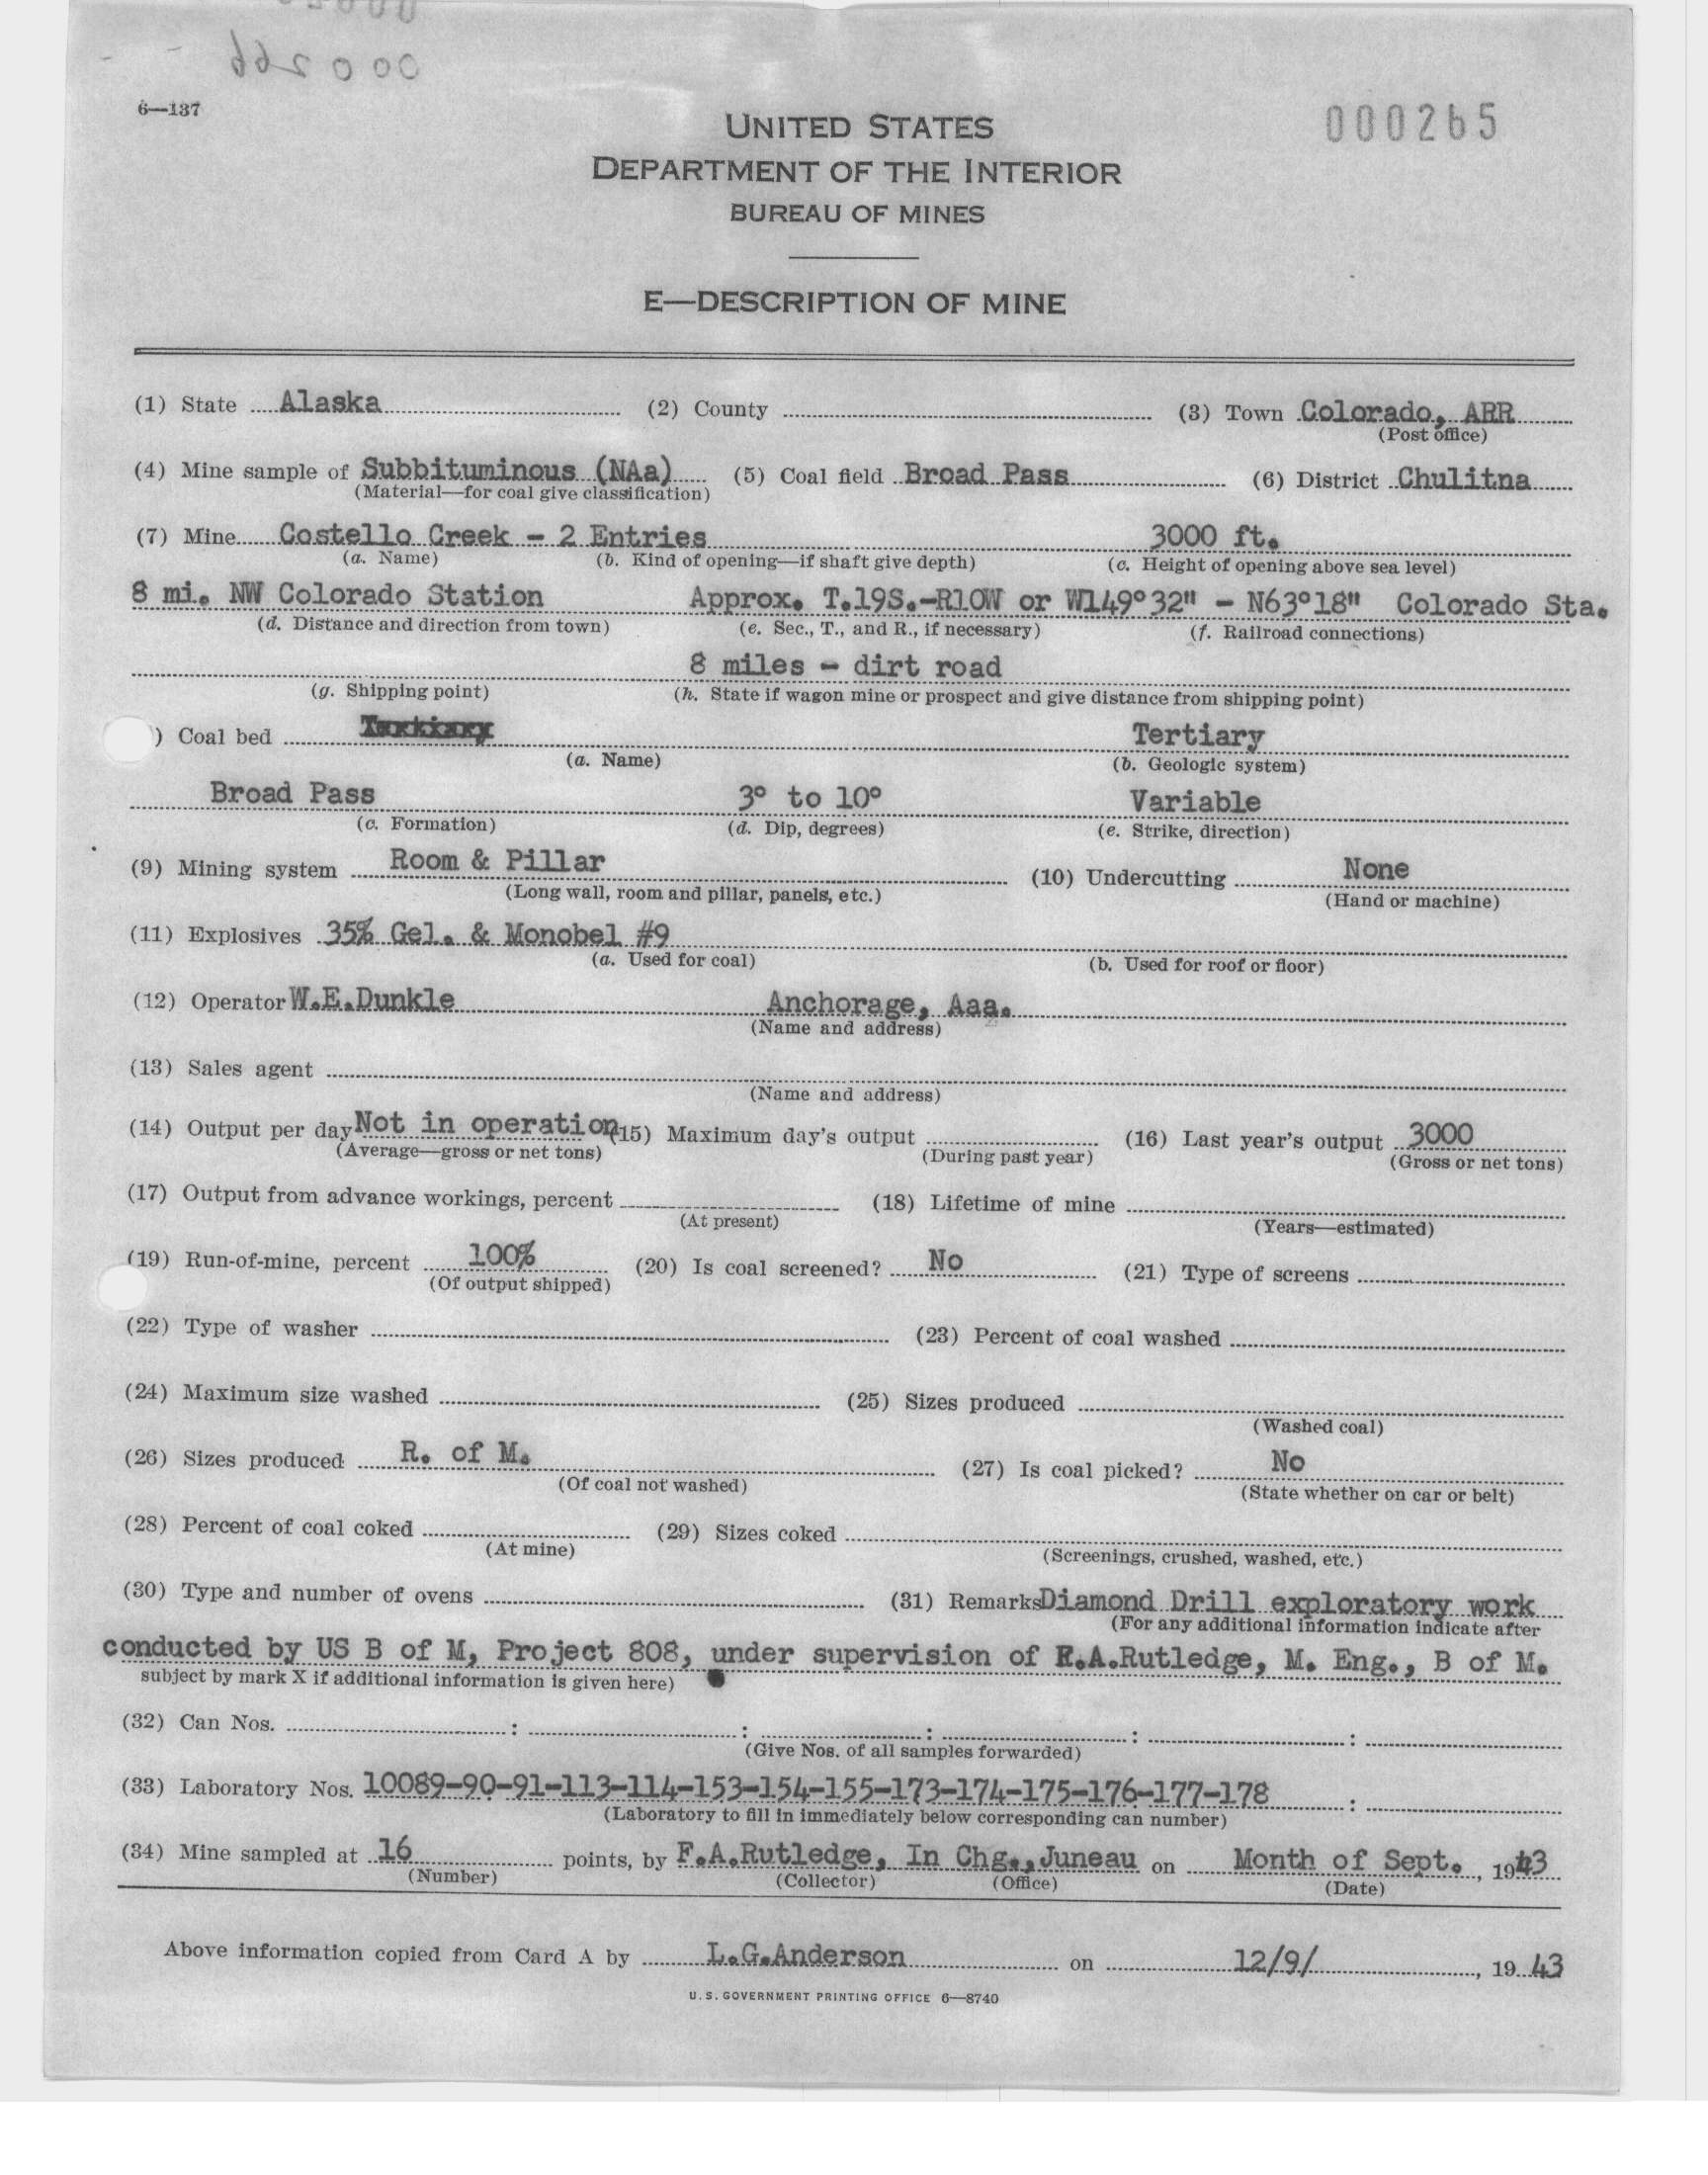 000266
6—137
000265
UNITED STATES
DEPARTMENT OF THE INTERIOR
BUREAU OF MINES
E—DESCRIPTION OF MINE
(1) State Alaska (2) County (3) Town Colorado, ARR
(Post office)
(4) Mine sample of Subbituminous (NAa) (5) Coal field Broad Pass (6) District Chulitna
(Material—for coal give classification)
(7) Mine Costello Creek - 2 Entries 3000 ft.
(a. Name) (b. Kind of opening—if shaft give depth) (c. Height of opening above sea level)
8 mi. NW Colorado Station Approx. T.19S.-R10W or W149°32" - N63°18" Colorado Sta.
(d. Distance and direction from town) (e. Sec., T., and R., if necessary) (f. Railroad connections)
8 miles - dirt road
(g. Shipping point) (h. State if wagon mine or prospect and give distance from shipping point)
) Coal bed Tertiary
(a. Name) (b. Geologic system)
Broad Pass 3° to 10° Variable
(c. Formation) (d. Dip, degrees) (e. Strike, direction)
(9) Mining system Room & Pillar (10) Undercutting None
(Long wall, room and pillar, panels, etc.) (Hand or machine)
(11) Explosives 35% Gel. & Monobel #9
(a. Used for coal) (b. Used for roof or floor)
(12) Operator W.E.Dunkle Anchorage, Aaa.
(Name and address)
(13) Sales agent
(Name and address)
(14) Output per day Not in operation (15) Maximum day's output (16) Last year's output 3000
(Average—gross or net tons) (During past year) (Gross or net tons)
(17) Output from advance workings, percent (18) Lifetime of mine
(At present) (Years—estimated)
(19) Run-of-mine, percent 100% (20) Is coal screened? No (21) Type of screens
(Of output shipped)
(22) Type of washer (23) Percent of coal washed
(24) Maximum size washed (25) Sizes produced
(Washed coal)
(26) Sizes produced R. of M. (27) Is coal picked? No
(Of coal not washed) (State whether on car or belt)
(28) Percent of coal coked (29) Sizes coked
(At mine) (Screenings, crushed, washed, etc.)
(30) Type and number of ovens (31) Remarks Diamond Drill exploratory work
(For any additional information indicate after
conducted by US B of M, Project 808, under supervision of F.A.Rutledge, M. Eng., B of M.
subject by mark X if additional information is given here)
(32) Can Nos. : : : : :
(Give Nos. of all samples forwarded)
(33) Laboratory Nos. 10089-90-91-113-114-153-154-155-173-174-175-176-177-178 :
(Laboratory to fill in immediately below corresponding can number)
(34) Mine sampled at 16 points, by F.A.Rutledge, In Chg., Juneau on Month of Sept., 1943
(Number) (Collector) (Office) (Date)
Above information copied from Card A by L.G.Anderson on 12/9/, 19 43
U.S. GOVERNMENT PRINTING OFFICE 6—8740